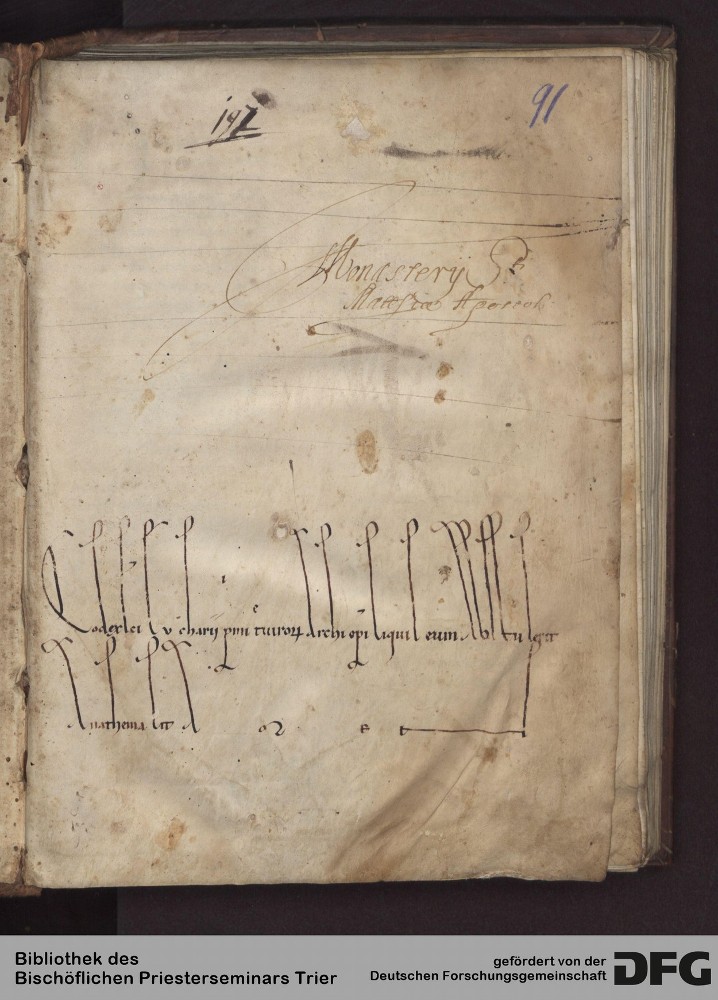 197
91
Monasterij Sti
Matthiae Apostoli
Codex sci Eucharii primi treuirorum Archiepi siquis eum abstulerit
Anathema sit AMEN
Bibliothek des
Bischöflichen Priesterseminars Trier
gefördert von der
Deutschen Forschungsgemeinschaft
DFG